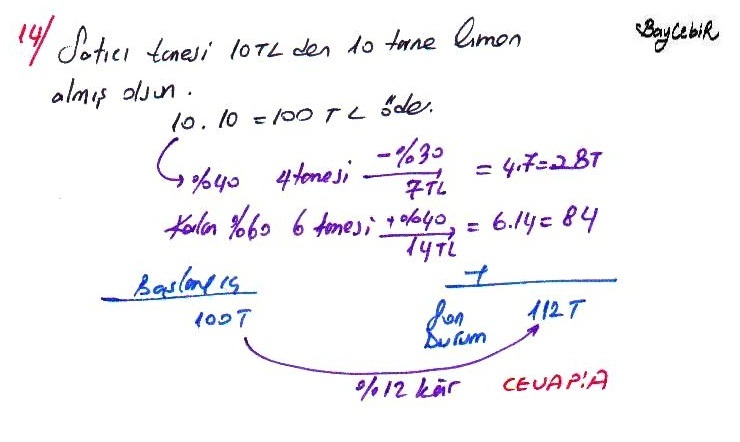 14/ Satıcı tanesi 10TL den 10 tane limon
BayCebiR
almış olsun.
10.10 = 100 TL öde.
%40 4 tanesi -%30 / 7TL = 4.7=28T
Kalan %60 6 tanesi +%40 / 14TL = 6.14 = 84
Başlangıç
+
100T
Son Durum 112T
%12 kâr CEVAP:A